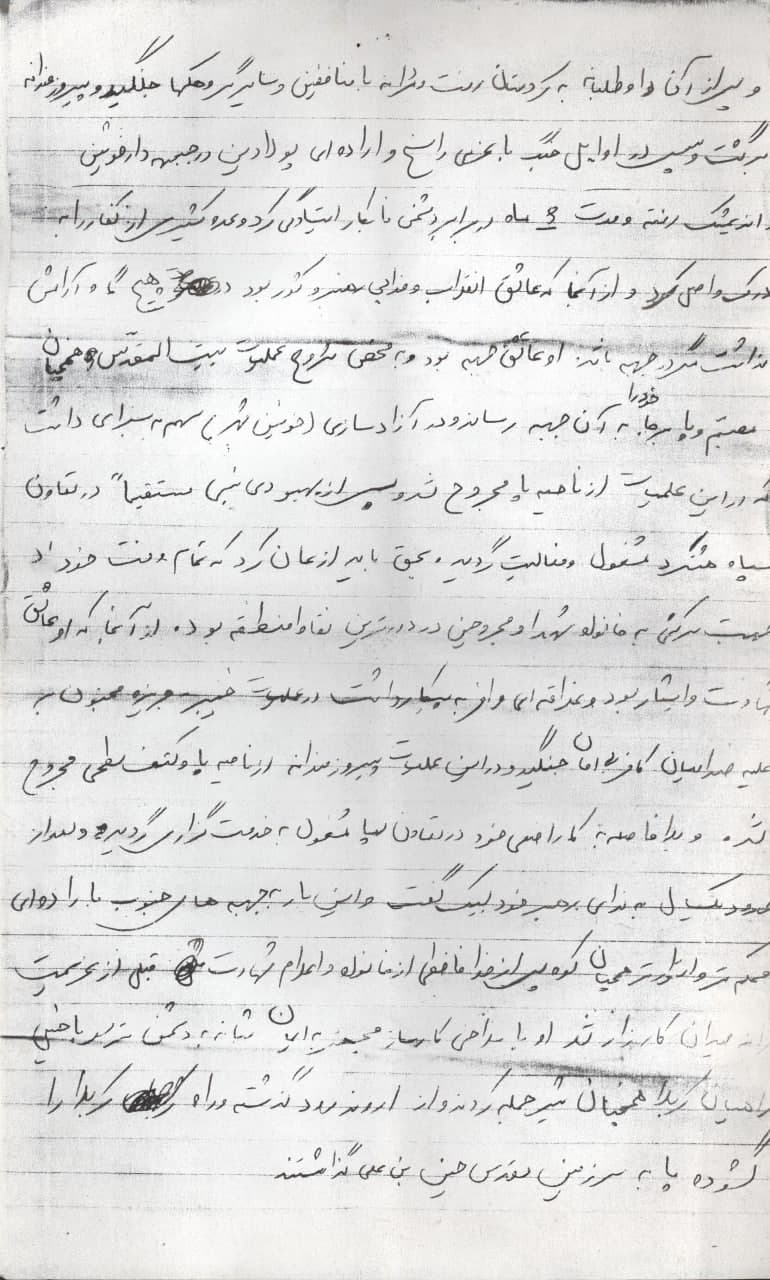 و پس از آن داوطلبانه به کردستان رفت دلیرانه با منافقین و سایر گروهکها جنگید و پیروزمندانه
برگشت و سپس در اوایل جنگ با عزمی راسخ و اراده ای پولادین در جبهه دارخوئین
اندیمشک رفته و مدت 9 ماه در برابر دشمن نابکار ایستادگی کرد و عده کثیری از کفار را به
درک واصل کرد و از آنجا که عاشق انقلاب و فدایی رهبر و کشور بود در هیچ کجا آرامش
نداشت مگر در جبهه باشد. او عاشق جبهه بود و به محض شروع عملیات بیت المقدس همچنان
مصمم و پا برجا خود را به آن جبهه رساند و در آزاد سازی (خونین شهر) سهم بسزایی داشت
که در این عملیات از ناحیه پا مجروح شد و پس از بهبودی نسبی مستقیماً در تعاون
سپاه هشتگرد مشغول و فعالیت گردید. بحق باید اذعان کرد که تمام وقت خود را
جهت سرکشی به خانواده شهدا و مجروحین در دورترین نقاط منطقه بود. از آنجا که او عاشق
شهادت و ایثار بود و علاقه ای وافر به پیکار داشت در عملیات خیبر جزیره مجنون بر
علیه صدامیان کافر بی امان جنگید و در این عملیات پیروزمندانه از ناحیه پا و کتف سطحی مجروح
شد. و بلافاصله به کار اصلی خود در تعاون سپاه مشغول به خدمت گزاری گردید و بعد از
حدود یکسال به ندای رهبر خود لبیک گفت و این بار به جبهه های جنوب با اراده ای
محکم تر و استوارتر همچنان کوه پس از خدا حافظی از خانواده و اعلام شهادت قبل از عزیمت
راند میدان کارزار شد او با سلاحی کارساز مجهز به ایمان شبانه به دشمن
راهیان کربلا همچنان شیر حمله کردند و از اروند رود گذشته و راه کربلا را
گشوده پا به سرزمین مقدس حسین بن علی گذاشتند